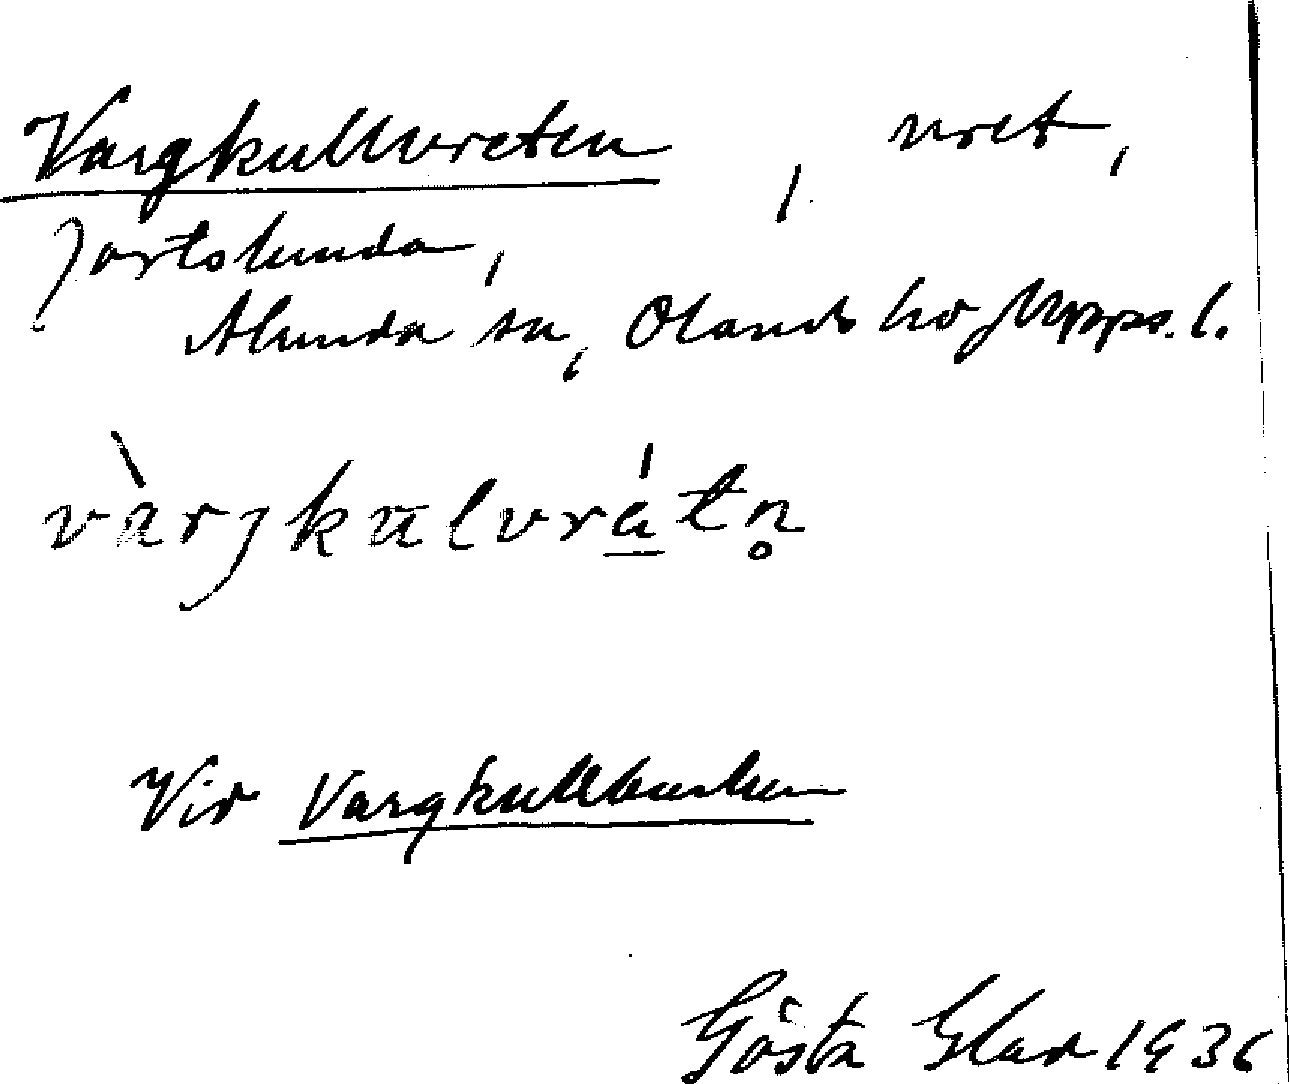 Vargkullvreten, vret,
Jortslunda,
Alunda sn, Olands hd, Upps. l.
vàrjkulvrátn̥
Vid Vargkullbacken
Gösta Glad 1936